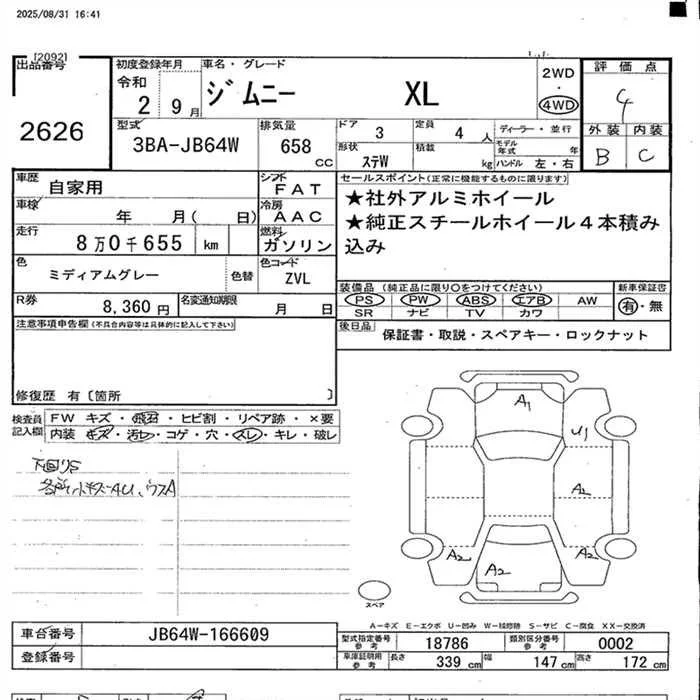 2025/08/31 16:41
[2092]
出品番号
2626
初度登録年月
令和
2 9月
車名・グレード
ジムニー XL
2WD
・
4WD
評価点
4
外装 内装
B C
型式
3BA-JB64W
排気量
658 CC
ドア
3
定員
4 人
形状
ステW
積載
kg
ディーラー・並行
モデル年式 年
ハンドル 左・右
車歴
自家用
シフト
FAT
車検
年 月( 日)
冷房
AAC
走行
8万0千655 km
燃料
ガソリン
色
ミディアムグレー
色替
色コード
ZVL
R券
8,360円
名変通知期限
月 日
セールスポイント(正常に機能するものに限ります)
★社外アルミホイール
★純正スチールホイール4本積み
込み
装備品 (純正品に限り○をつけてください)
PS PW ABS エアB AW
SR ナビ TV カワ
新車保証書
有・無
後日品
保証書・取説・スペアキー・ロックナット
注意事項申告欄(不具合内容等は具体的に記入して下さい)
修復歴 有〔箇所 〕
検査員
記入欄
FW キズ・飛石・ヒビ割・リペア跡・×要
内装 キズ・汚レ・コゲ・穴・スレ・キレ・破レ
下回りS
A1
U1
A2
A2
A2
A2
スペア
A-キズ E-エクボ U-凹み W-補修跡 S-サビ C-腐食 XX-交換済
車台番号
JB64W-166609
登録番号
型式指定番号
参考
18786
類別区分番号
参考
0002
車庫証明用
参考
長さ 339 cm 幅 147 cm 高さ 172 cm